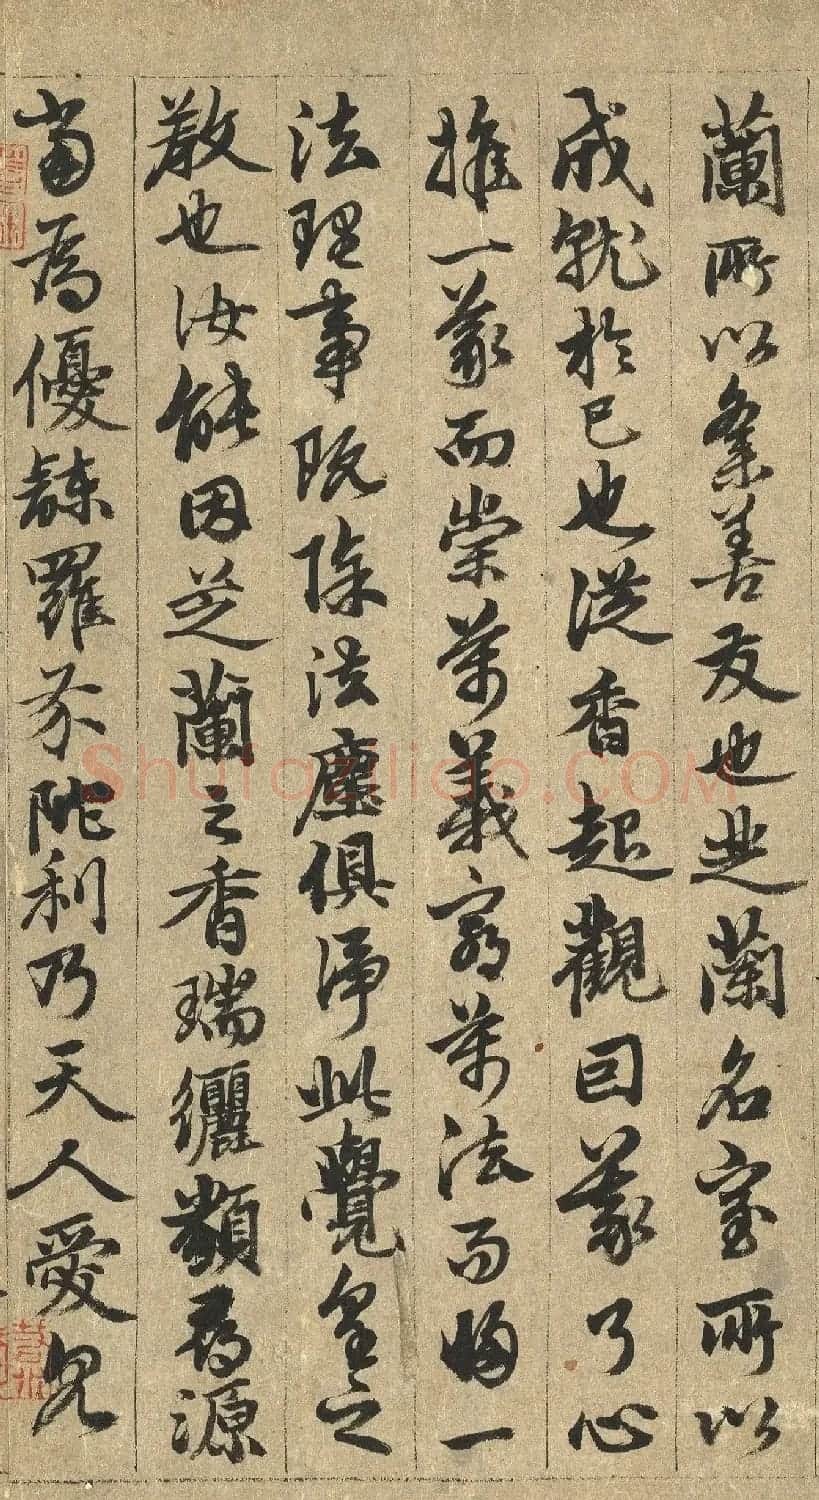 蘭所以象善友也芝蘭名室所以
成就於己也從香起觀因蒙了心
推一蒙而崇萬義窮萬法而歸一
法理事既除法塵俱淨此覺皇之
教也汝能因芝蘭之香瑞纚類尋源
當為優缽羅芬陀利乃天人愛見
Shufaziliao.COM